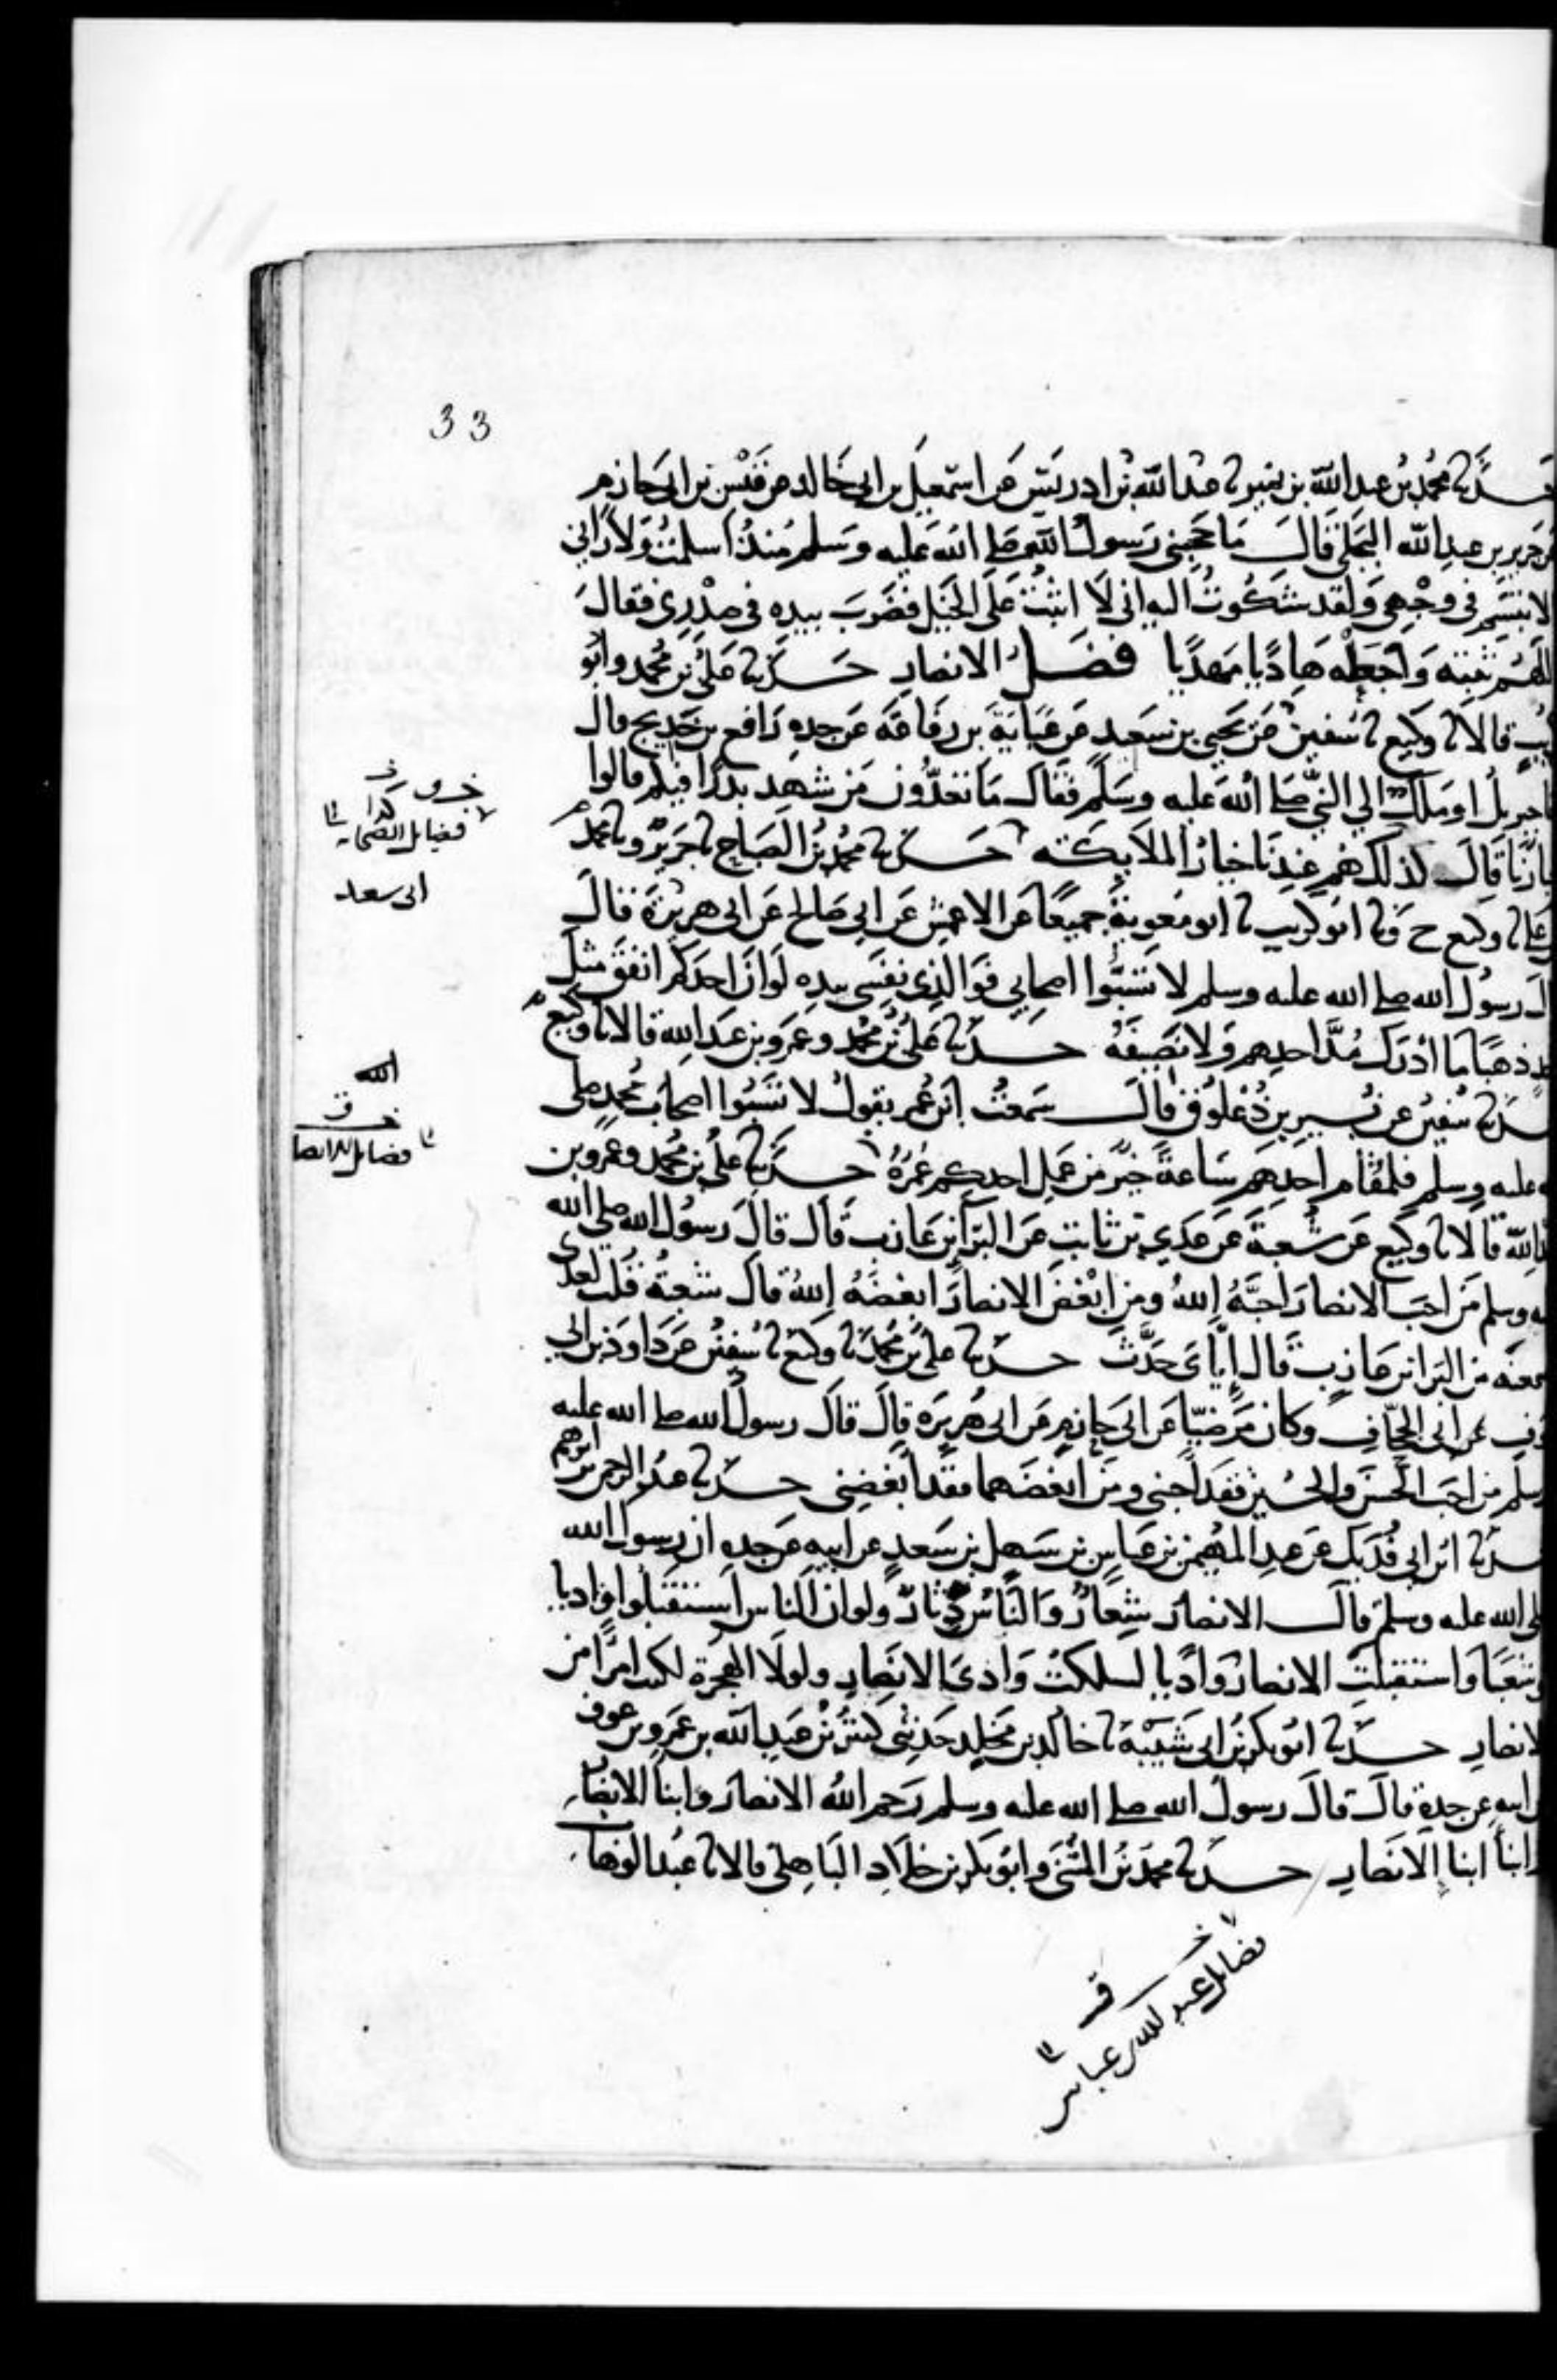 33
حدثنا محمد بن عبد الله بن نمير ثنا عبد الله بن ادريس عن اسمعيل بن ابي خالد عن قيس بن ابي حازم
عن جرير بن عبد الله البجلي قال ما حجبني رسول الله صلى الله عليه وسلم منذ اسلمت ولا راني
الا تبسم في وجهي ولقد شكوت اليه اني لا اثبت على الخيل فضرب بيده في صدري فقال
اللهم ثبته واجعله هاديا مهديا فضل الانصار حدثنا علي بن محمد وابو
كريب قالا ثنا وكيع ثنا سفين عن يحيى بن سعيد عن عباية بن رفاعة عن جده رافع بن خديج قال
جا جبريل او ملك الى النبي صلى الله عليه وسلم فقال ما تعدون من شهد بدرا فيكم قالوا
خيارنا قال كذلك هم عندنا خيار الملايكة حدثنا محمد بن الصباح ثنا جرير وثنا محمد
علي ثنا وكيع ح وثنا ابو كريب ثنا ابو معوية جميعا عن الاعمش عن ابي صالح عن ابي هريرة قال
قال رسول الله صلى الله عليه وسلم لا تسبوا اصحابي فوالذي نفسي بيده لو ان احدكم انفق مثل
احد ذهبا ما ادرك مد احدهم ولا نصيفه حدثنا علي بن محمد وعمرو بن عبد الله قالا ثنا وكيع
حدثنا سفين عن نسير بن ذعلوق قال سمعت ابن عمر يقول لا تسبوا اصحاب محمد صلى
الله عليه وسلم فلمقام احدهم ساعة خير من عمل احدكم عمره حدثنا علي بن محمد وعمرو بن
عبد الله قالا ثنا وكيع عن شعبة عن عدي بن ثابت عن البرا بن عازب قال قال رسول الله صلى الله
عليه وسلم من احب الانصار احبه الله ومن ابغض الانصار ابغضه الله قال شعبة قلت لعدي
سمعته من البرا بن عازب قال اياي حدث حدثنا علي بن محمد ثنا وكيع ثنا سفين عن داود بن ابي
عوف عن ابي الجحاف وكان مرضيا عن ابي حازم عن ابي هريرة قال قال رسول الله صلى الله عليه
وسلم من احب الحسن والحسين فقد احبني ومن ابغضهما فقد ابغضني حدثنا عبد الرحمن بن ابرهيم
حدثنا ابن ابي فديك عن عبد المهيمن بن عباس بن سهل بن سعد عن ابيه عن جده ان رسول الله
صلى الله عليه وسلم قال الانصار شعار والناس دثار ولو ان الناس استقبلوا واديا
او شعبا واستقبلت الانصار واديا لسلكت وادي الانصار ولولا الهجرة لكنت امرا من
الانصار حدثنا ابو بكر بن ابي شيبة ثنا خالد بن مخلد حدثني كثير بن عبد الله بن عمرو بن عوف
عن ابيه عن جده قال قال رسول الله صلى الله عليه وسلم رحم الله الانصار وابنا الانصار
وابنا ابنا الانصار حدثنا محمد بن المثنى وابو بكر بن خلاد الباهلي قالا ثنا عبد الوهاب
فضايل الصحابة
ابي سعد
الله
فضايل الانصار
فضايل عبد الله بن عباس